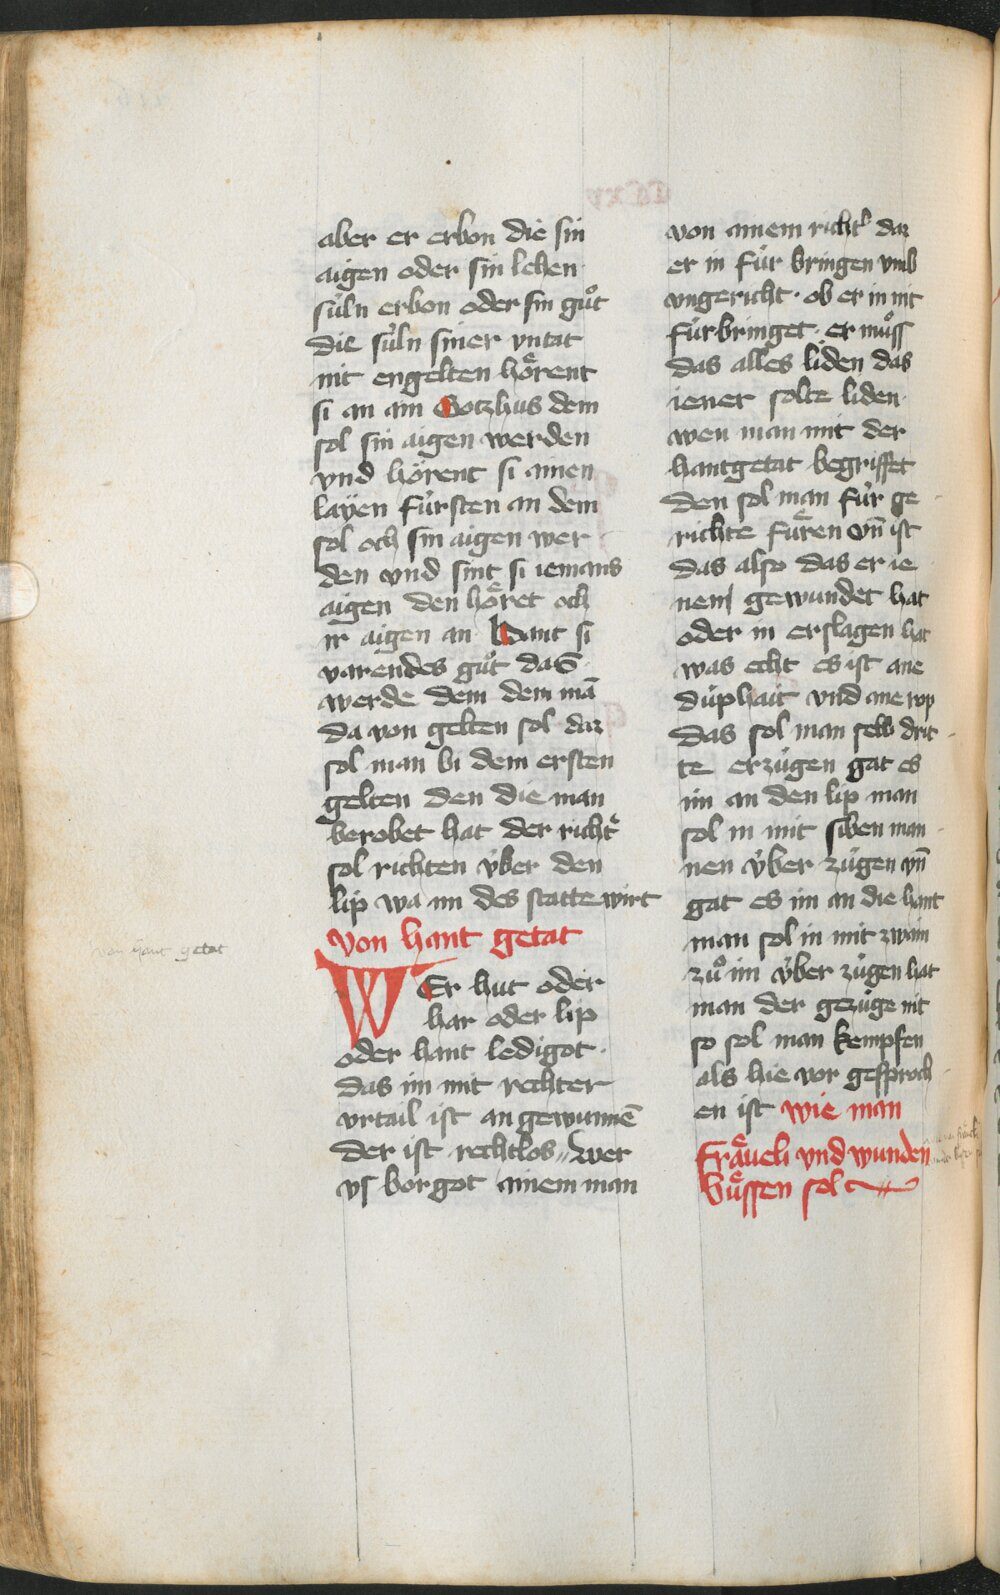 aber er erbon die sin
aigen oder sin lehen
su̍ln erbon oder sin gůt
die su̍ln siner vntat
nit engelten hoͤrent
si an ain Gotzhus dem
sol sin aigen werden
vnd hörent si ainen
layen fu̍rsten an dem
sol och sin aigen wer
den vnd sint si iemans
aigen den hoͤret och
ir aigen an Hant si
varendes gůt das
werde dem dem mā
da von gelten sol daz
sol man bi dem ersten
gelten den die man
berobet hat der richt̛
sol richten v̍ber den
lip wa im des statte wirt
von hant getat
WEr hut oder
har oder lip
oder hant ledigot
das im mit rechter
vrtail ist an gewunnē
der ist rechtlos wer
vs borgot ainem man
von ainem richt̛ daz
er in fu̍r bringen vmb
vngericht · ob er in nit
fu̍rbringet · er můss
das alles liden das
iener solte liden
wen man mit der
hantgetat begriffet
den sol man fu̍r ge
richte fuͤren vn̄ ist
das also das er ie
nem gewundet hat
oder in erslagen hat
was echt es ist ane
du̍phait vnd ane wp
das sol man selb drit
te erzu̍gen gat es
im an den lip man
sol in mit siben man
nen v̍ber zu̍gen vn̄
gat es im an die hant
man sol in mit zwain
zů im v̍ber zu̍gen hat
man der gezu̍ge nit
so sol man kempfen
als hie vor gesproch
en ist wie man
fraͤueli vnd wunden
buͤssen sol
von hant getat